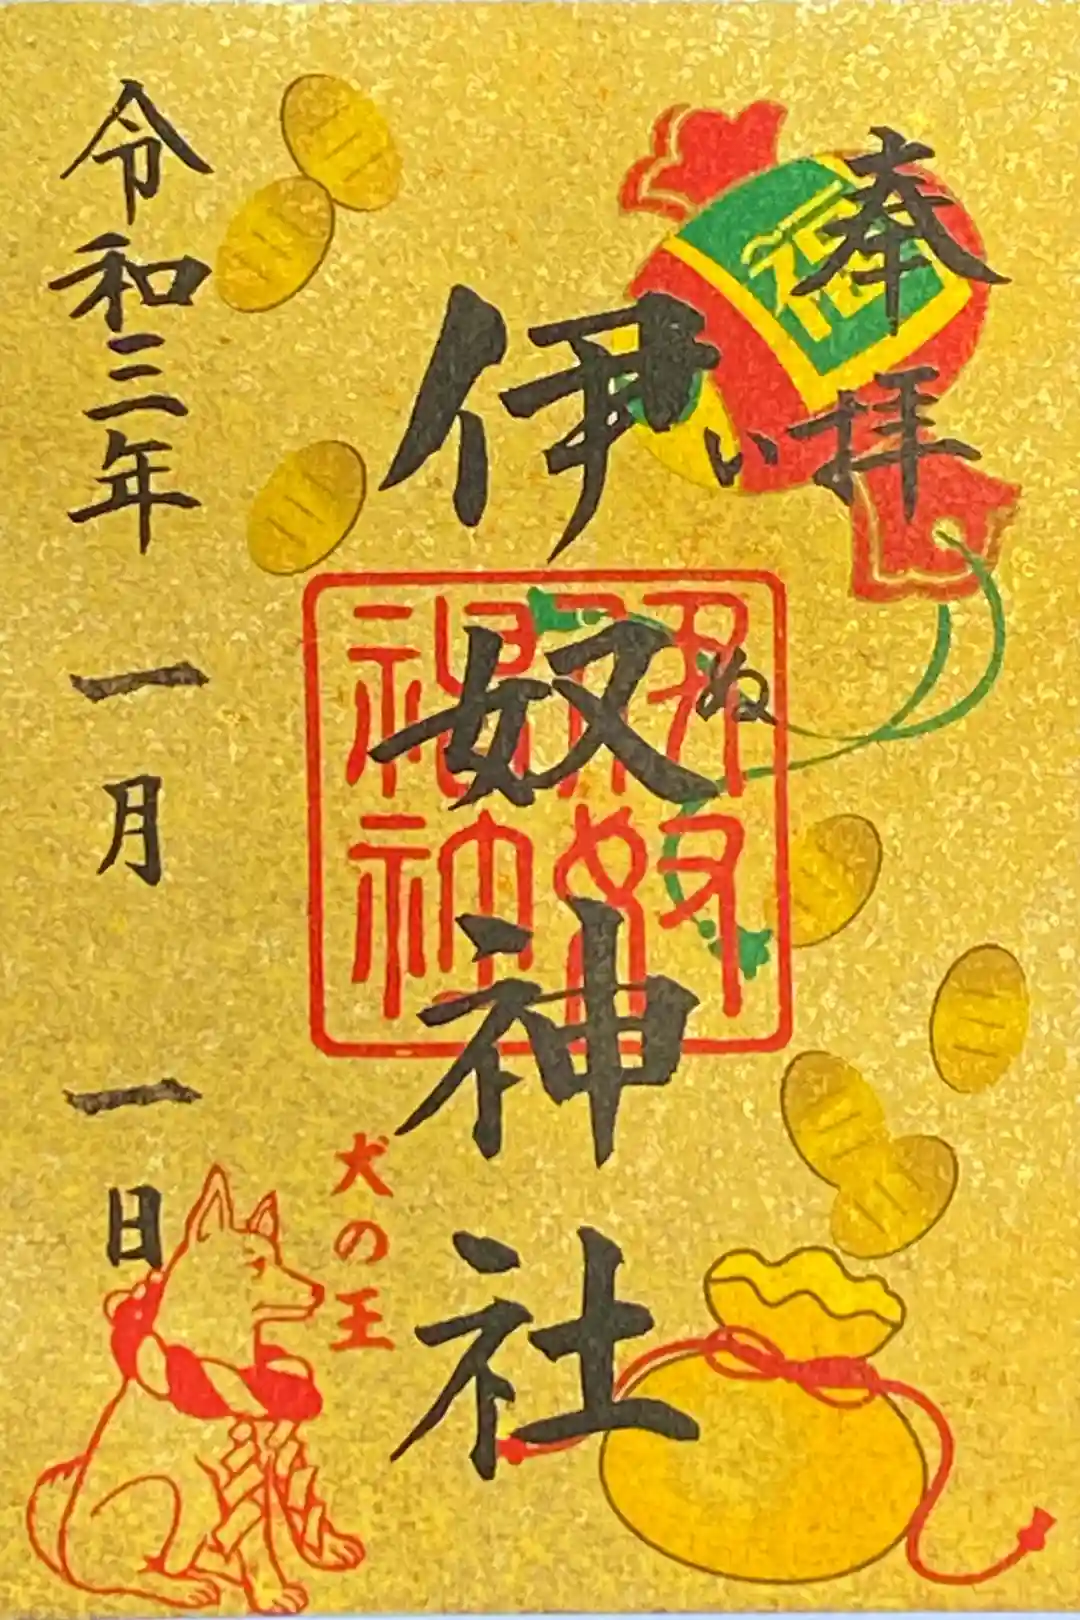 奉拝
福
伊奴神社
い
ぬ
伊奴神社
犬の王
令和三年 一月 一日